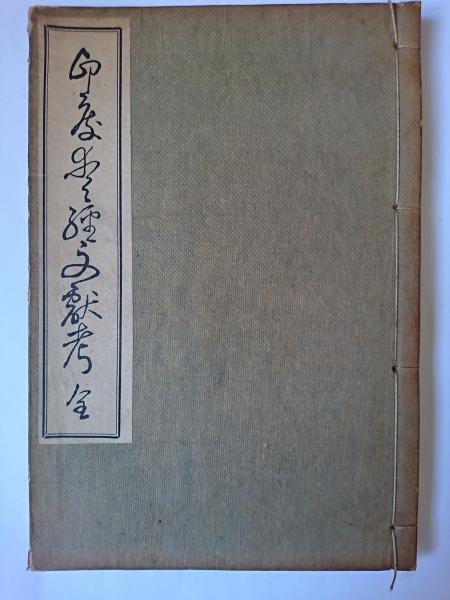 印度愛經文獻考 全